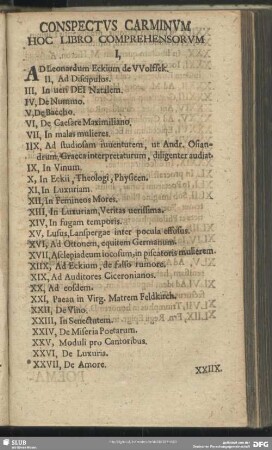 CONSPECTVS CARMINVM
HOC LIBRO COMPREHENSORVM
I,
AD Leonardum Eckium de VVolffek.
II, Ad Discipulos.
III, In ueri DEI Natalem.
IV, De Nummo.
V, De Baccho.
VI, De Caesare Maximiliano.
VII, In malas mulieres.
IIX, Ad studiosam iuuentutem, ut Andr. Osian-
drum, Graeca interpretaturum, diligenter audiat.
IX, In Vinum.
X, In Eckii, Theologi, Physicen.
XI, In Luxuriam.
XII, In Femineos Mores.
XIII, In Luxuriam, Veritas uerissima.
XIV, In fugam temporis.
XV, Lusus, Lanspergae inter pocula effusus.
XVI, Ad Ottonem, equitem Germanum.
XVII, Asclepiadeum iocosum, in piscatoris mulierem.
XIIX, Ad Eckium, de falso rumore.
XIX, Ad Auditores Ciceronianos.
XX, Ad eosdem.
XXI, Paean in Virg. Matrem Feldkirch.
XXII, De Vino.
XXIII, In Senectutem.
XXIV, De Miseria Poetarum.
XXV, Moduli pro Cantoribus.
XXVI, De Luxuria.
* XXVII, De Amore.
XXIIX.
SLUB
DFG